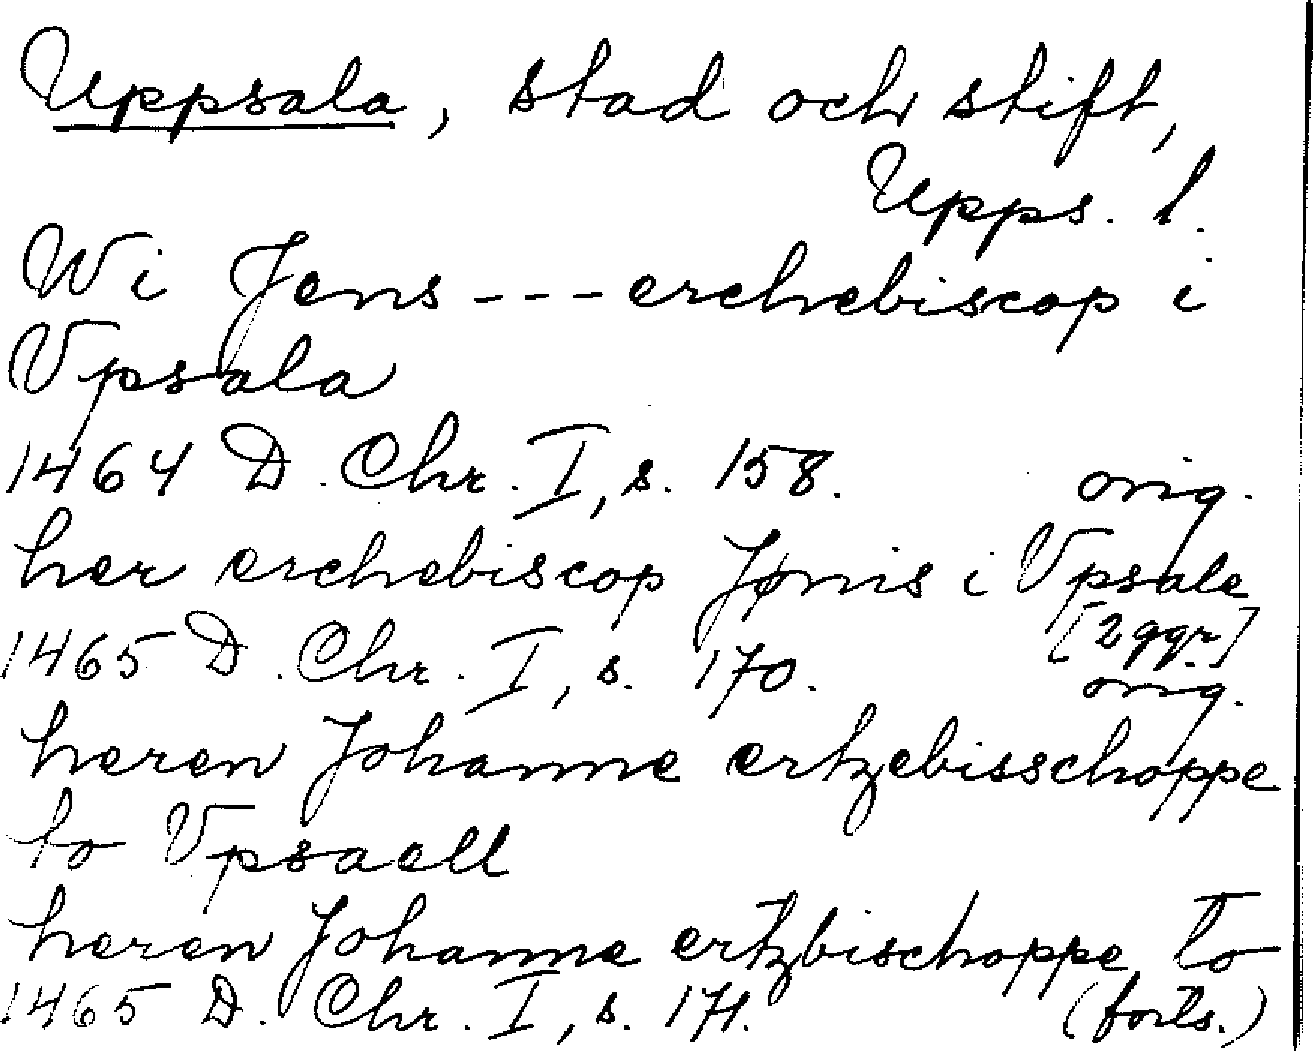 Uppsala, stad och stift,
Upps. l.
Wi Jens --- erchebiscop i
Vpsala
1464 D. Chr. I, s. 158. orig.
her erchebiscop Jønis i Vpsale
[2 ggr]
1465 D. Chr. I, s. 170. orig.
heren Johanne ertzebisschoppe
to Vpsaell
heren Johanne ertzbischoppe to
1465 D. Chr. I, s. 171. (forts.)